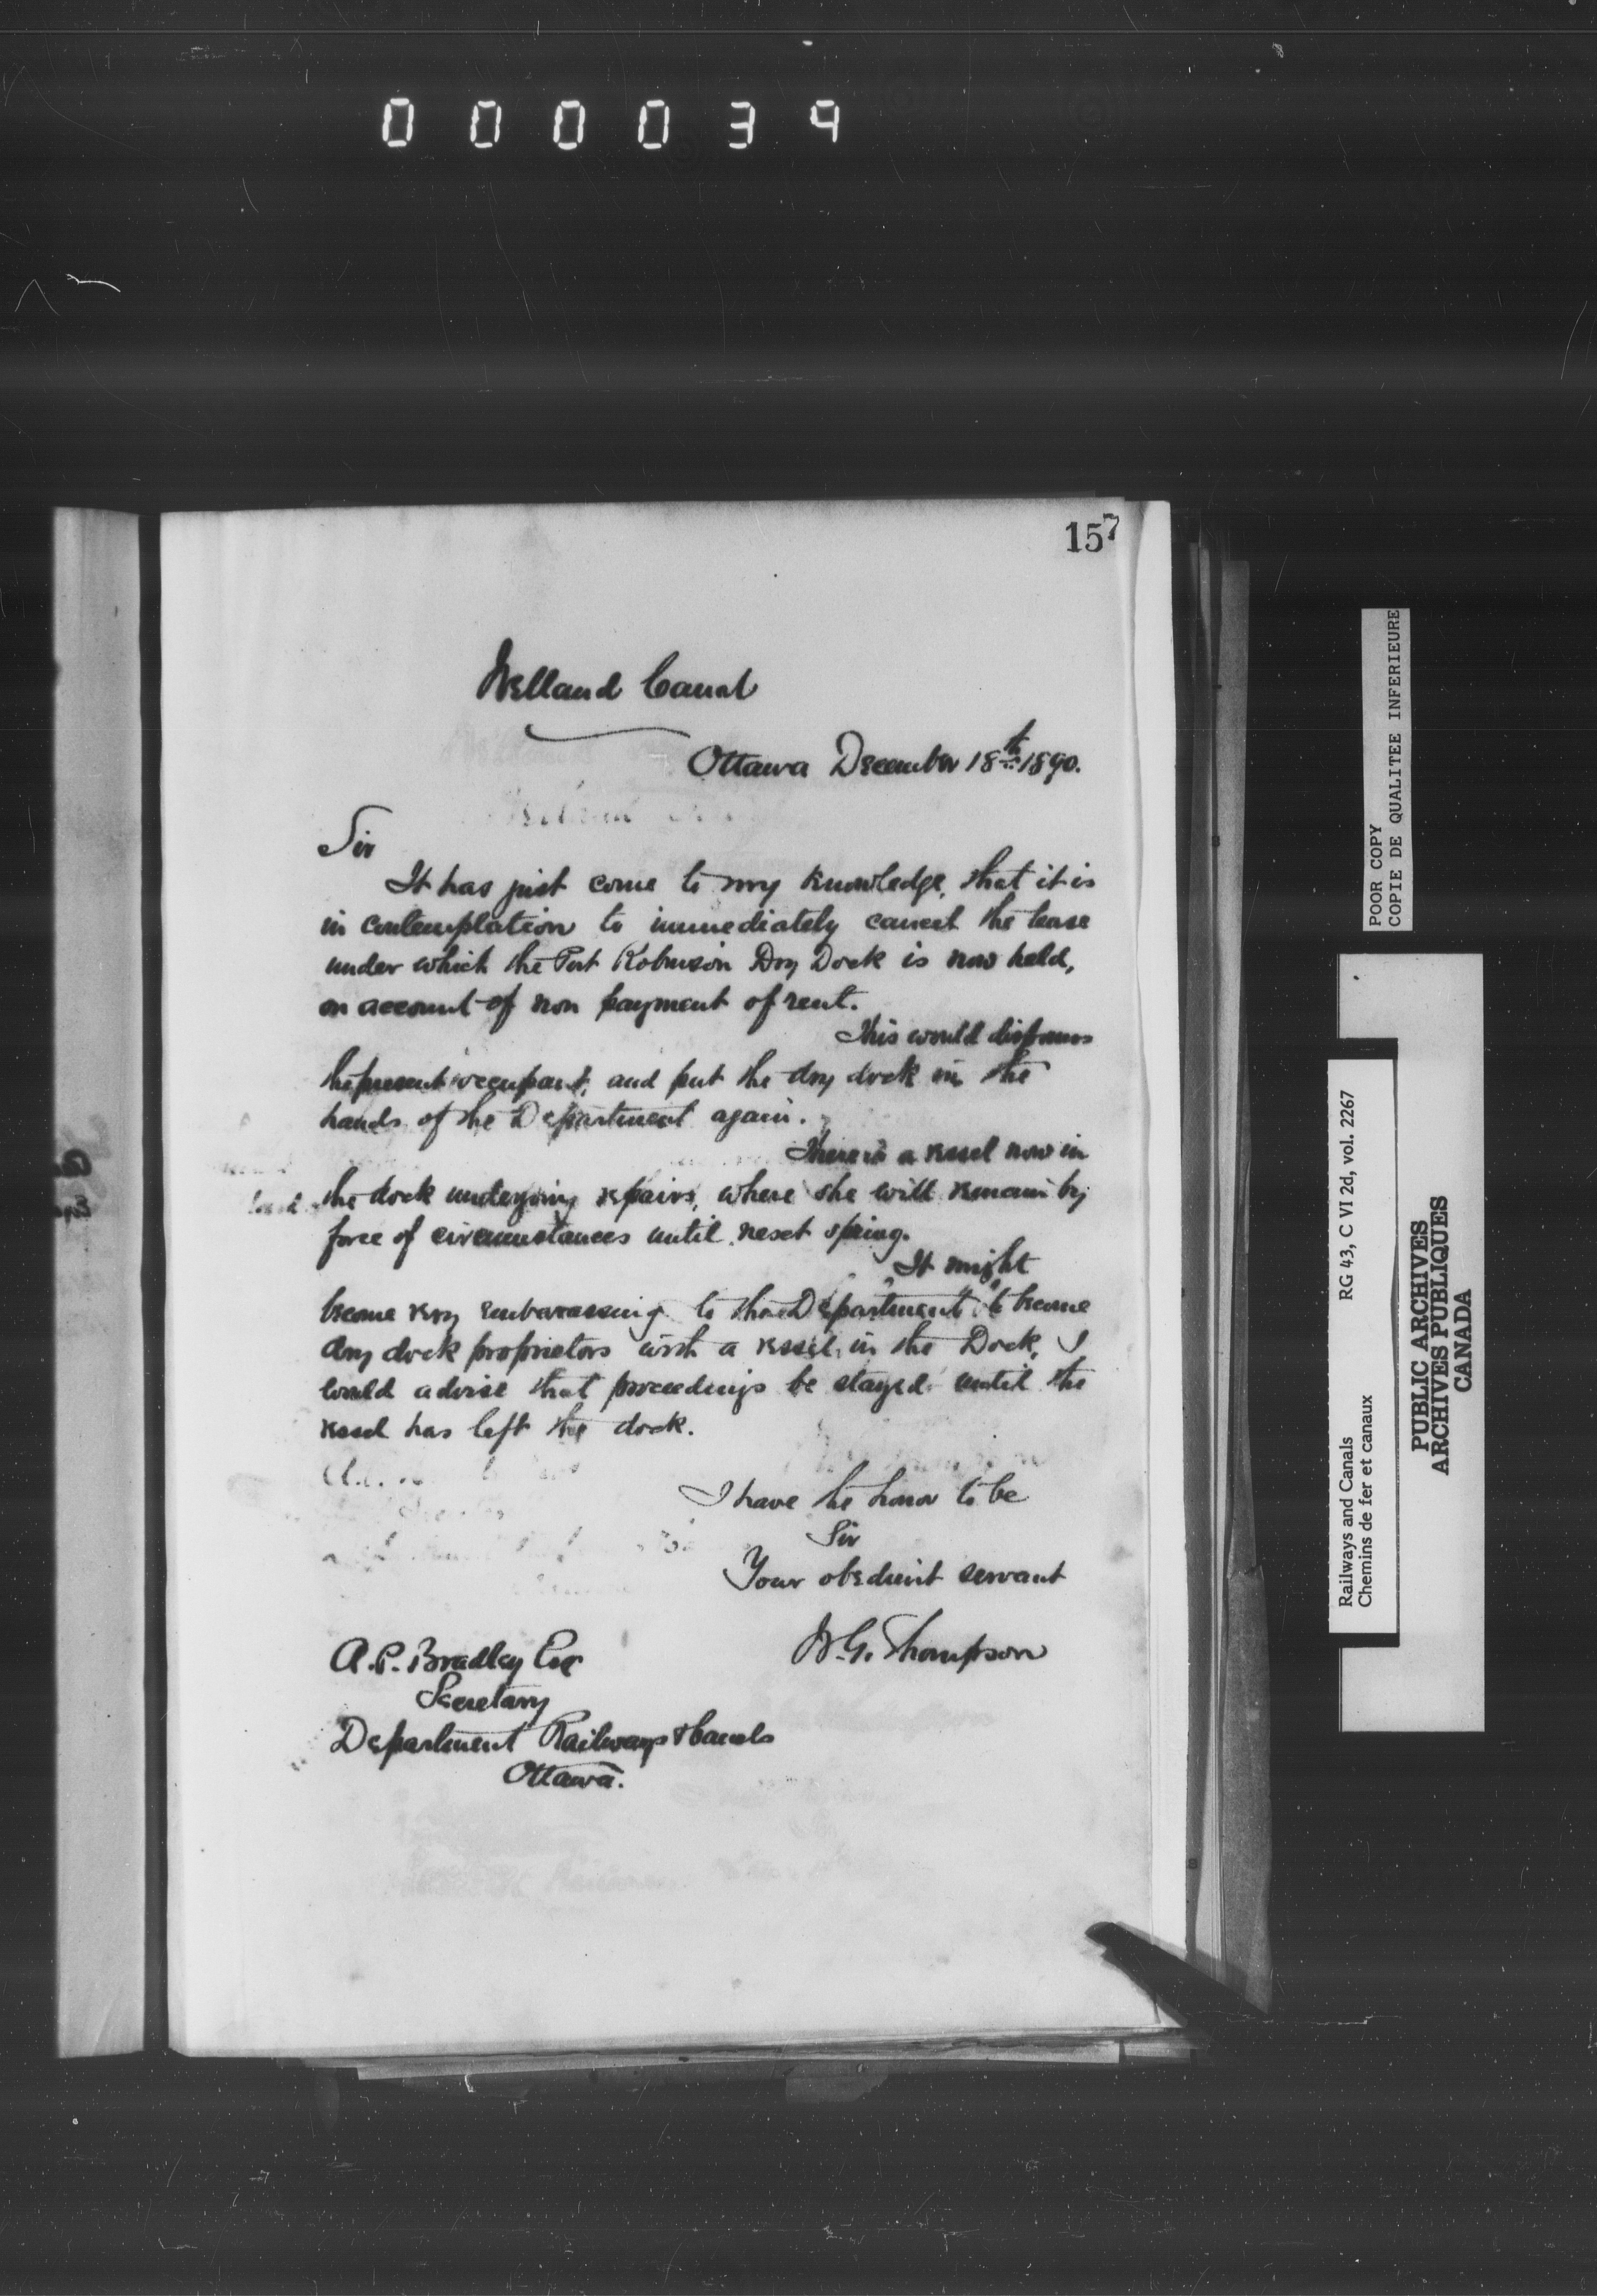 000039
157
Welland Canal
Ottawa December 18th 1890.
Sir
It has just come to my knowledge, that it is
in contemplation to immediately cancel the lease
under which the Port Robinson Dry Dock is now held,
on account of non payment of rent.
This would dispossess
the present occupant, and put the dry dock in the
hands of the Department again.
There is a vessel now in
the dock undergoing repairs, where she will remain by
force of circumstances until next spring.
It might
become very embarassing to the Department to become
dry dock proprietors with a vessel in the Dock, I
would advise that proceedings be stayed until the
vessel has left the dock.
I have the honor to be
Sir
Your obedient servant
W. G. Thompson
A. P. Bradley Esq
Secretary
Department Railways & Canals
Ottawa.
POOR COPY
COPIE DE QUALITEE INFERIEURE
Railways and Canals RG 43, C VI 2d, vol. 2267
Chemins de fer et canaux
PUBLIC ARCHIVES
ARCHIVES PUBLIQUES
CANADA